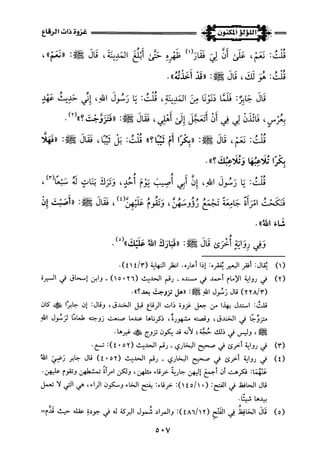 اللؤلؤ المكنون
غزوة ذات الرقاع
قُلْتُ: نَعَمْ، عَلَى أَنَّ لِي فَقَارَ(١) ظَهْرِهِ حَتَّى أَبْلُغَ المَدِينَةَ، قَالَ ﷺ: «نَعَمْ»،
قُلْتُ: هُوَ لَكَ، قَالَ ﷺ: «قَدْ أَخَذْتُهُ».
قَالَ جَابِرٌ: فَلَمَّا دَنَوْنَا مِنَ المَدِينَةِ، قُلْتُ: يَا رَسُولَ اللهِ، إِنِّي حَدِيثُ عَهْدٍ
بِعُرْسٍ، فَائْذَنْ لِي فِي أَنْ أَتَعَجَّلَ إِلَى أَهْلِي، فَقَالَ ﷺ: «فَتَزَوَّجْتَ؟»(٢).
قُلْتُ: نَعَمْ، قَالَ ﷺ: «بِكْرًا أَمْ ثَيِّبًا؟» قُلْتُ: بَلْ ثَيِّبًا، فَقَالَ ﷺ: «فَهَلَّا
بِكْرًا تُلَاعِبُهَا وَتُلَاعِبُكَ؟».
قُلْتُ: يَا رَسُولَ اللهِ، إِنَّ أَبِي أُصِيبَ يَوْمَ أُحُدٍ، وَتَرَكَ بَنَاتٍ لَهُ سَبْعًا(٣)،
فَنَكَحْتُ امْرَأَةً جَامِعَةً تَجْمَعُ رُؤُوسَهُنَّ، وَتَقُومُ عَلَيْهِنَّ(٤)، فَقَالَ ﷺ: «أَصَبْتَ إِنْ
شَاءَ اللهُ».
وَفِي رِوَايَةٍ أُخْرَى قَالَ ﷺ: «فَبَارَكَ اللهُ عَلَيْكَ»(٥).
(١) يُقال: أفقر البعير يُفقره: إذا أعاره. انظر النهاية (٤١٤/٣).
(٢) في رواية الإمام أحمد في مسنده ـ رقم الحديث (١٥٠٢٦) ـ وابن إسحاق في السيرة
(٢٢٨/٣) قال رسول الله ﷺ: «هل تزوجت بعد؟».
قلتُ: استدل بهذا من جعل غزوة ذات الرقاع قبل الخندق، وقال: إن جابرًا ﷺ كان
متزوِّجًا في الخندق، وقصته مشهورةٌ، ذكرناها عندما صنعت زوجته طعامًا لرسول الله
ﷺ، وليس في ذلك حُجَّة؛ لأنه قد يكون تزوج ﷺ غيرها.
(٣) في رواية أخرى في صحيح البخاري ـ رقم الحديث (٤٠٥٢): تسع.
(٤) في رواية أخرى في صحيح البخاري ـ رقم الحديث (٤٠٥٢) قال جابر رَضِيَ اللهُ
عَنْهُمَا: فكرهت أن أجمع إليهن جارية خرقاء مثلهن، ولكن امرأةً تمشطهن وتقوم عليهن.
قال الحافظ في الفتح: (١٤٥/١٠): خرقاء: بفتح الخاء وسكون الراء، هي التي لا تعمل
بيدها شيئًا.
(٥) قَالَ الحَافِظُ فِي الفَتْحِ (٤٨٦/١٢): والمراد شُمول البركة له في جودةِ عقله حيث قَدَّم=
٥٠٧